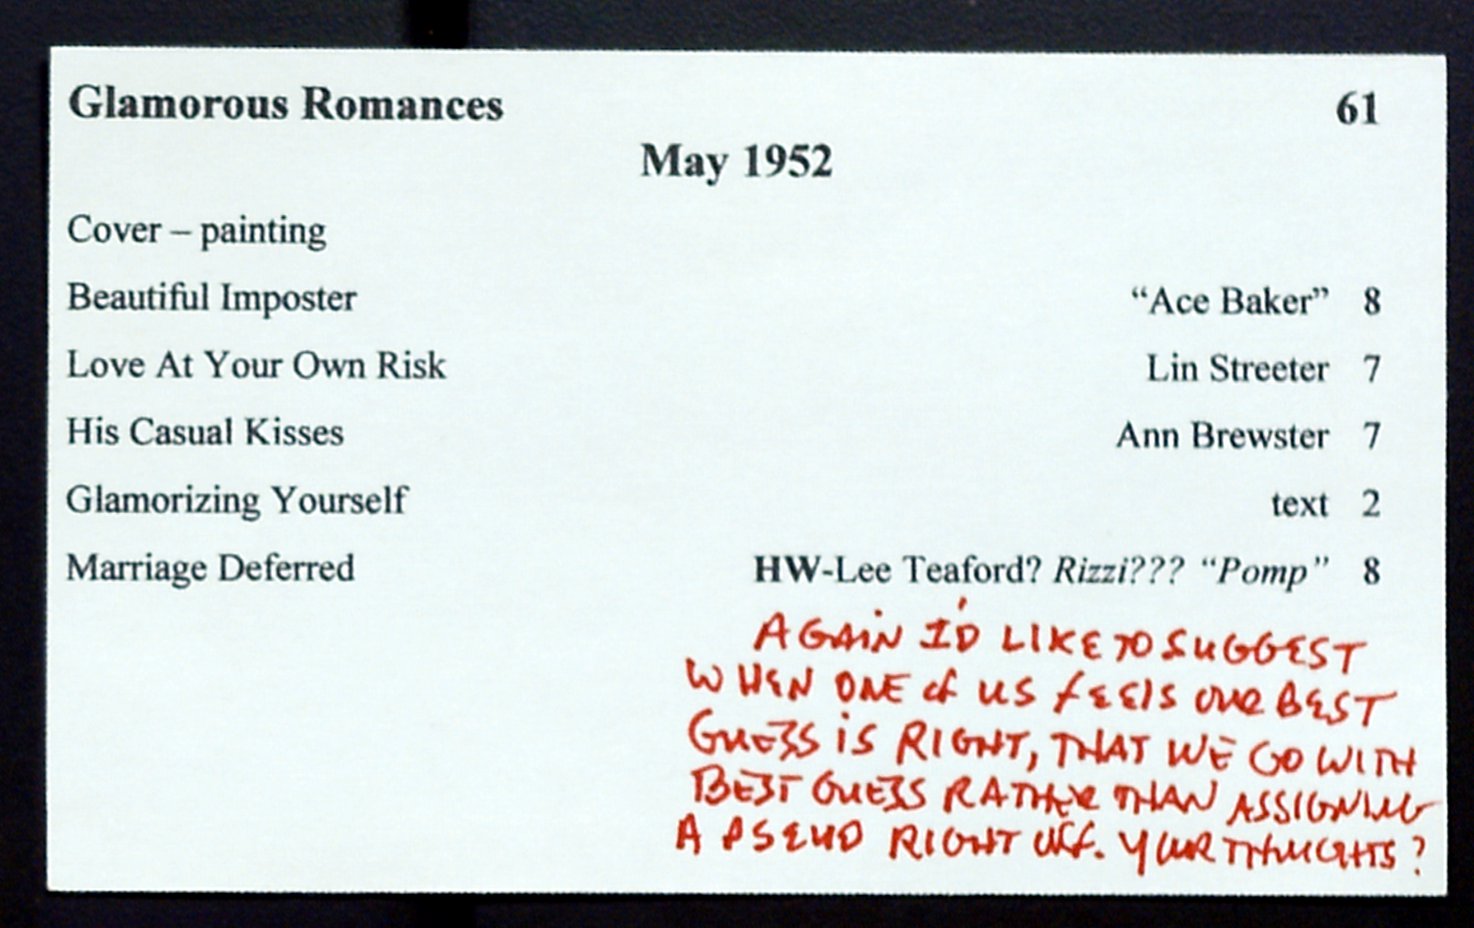 Glamorous Romances 61
May 1952
Cover – painting
Beautiful Imposter “Ace Baker” 8
Love At Your Own Risk Lin Streeter 7
His Casual Kisses Ann Brewster 7
Glamorizing Yourself text 2
Marriage Deferred HW-Lee Teaford? Rizzi??? “Pomp” 8
AGAIN I'D LIKE TO SUGGEST
WHEN ONE of US FEELS OUR BEST
GUESS IS RIGHT, THAT WE GO WITH
BEST GUESS RATHER THAN ASSIGNING
A PSEUD RIGHT OFF. YOUR THOUGHTS?